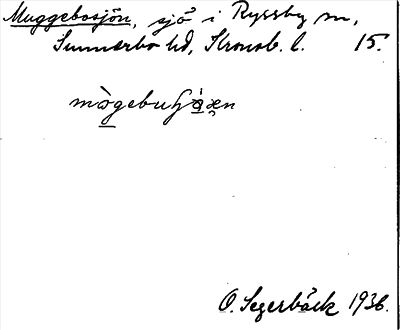 Muggebosjön, sjö i Ryssby sn,
Sunnerbo hd, Kronob. l. 15.
O. Segerbäck 1936.